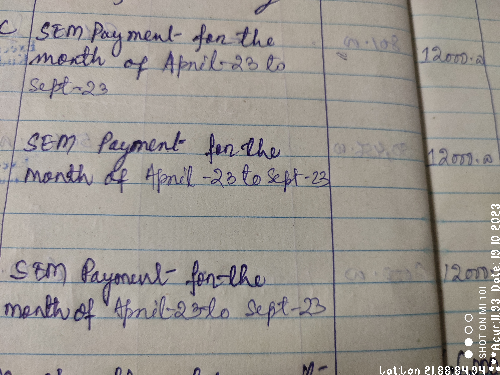 SEM Payment for the
month of April-23 to
Sept-23
12000.00
SEM Payment for the
month of April-23 to Sept-23
12000.00
SEM Payment for the
month of April-23 to Sept-23
12000.
SHOT ON MI 10I
Date 19 10 2023